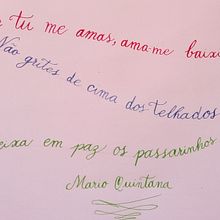 tu me amas, ama-me baixi
Não grites de cima dos telhados
eixa em paz os passarinhos
Mario Quintana